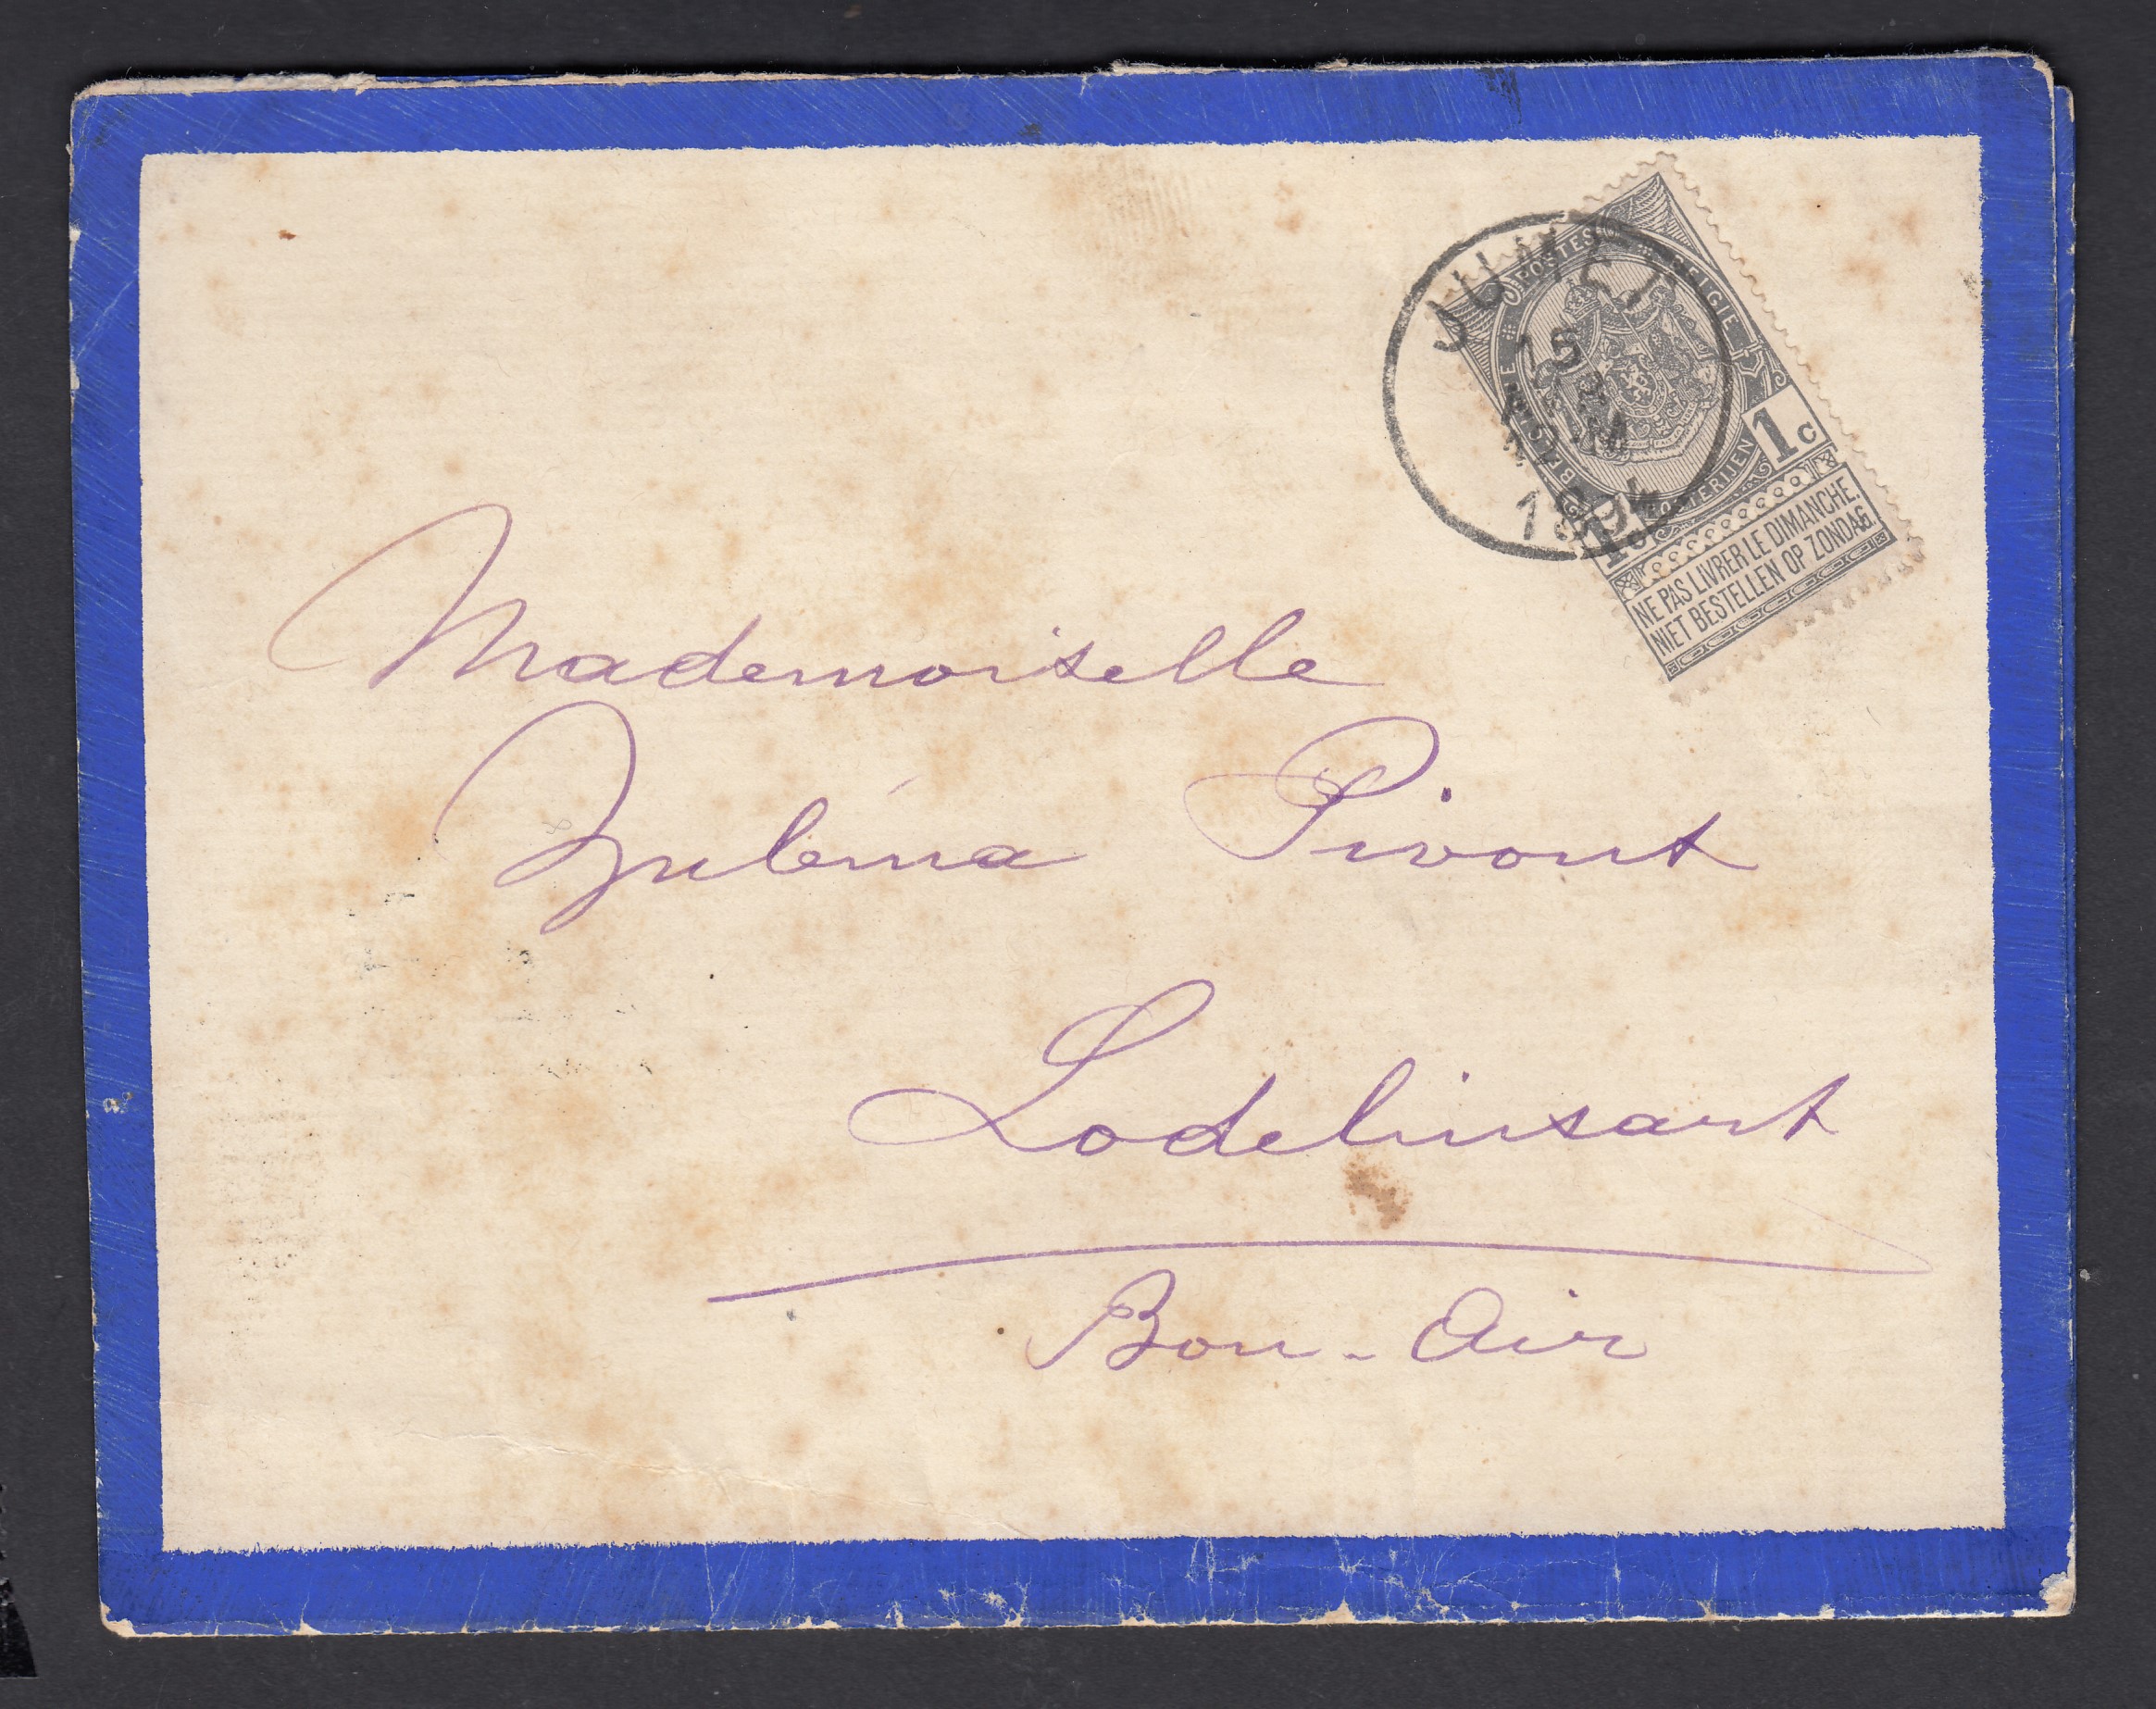 JUMET
1894
POSTES
BELGIE
POSTERIJEN
1c
1c
NE PAS LIVRER LE DIMANCHE.
NIET BESTELLEN OP ZONDAG.
Mademoiselle
Zuléma Pivont
Lodelinsart
Bon-Air